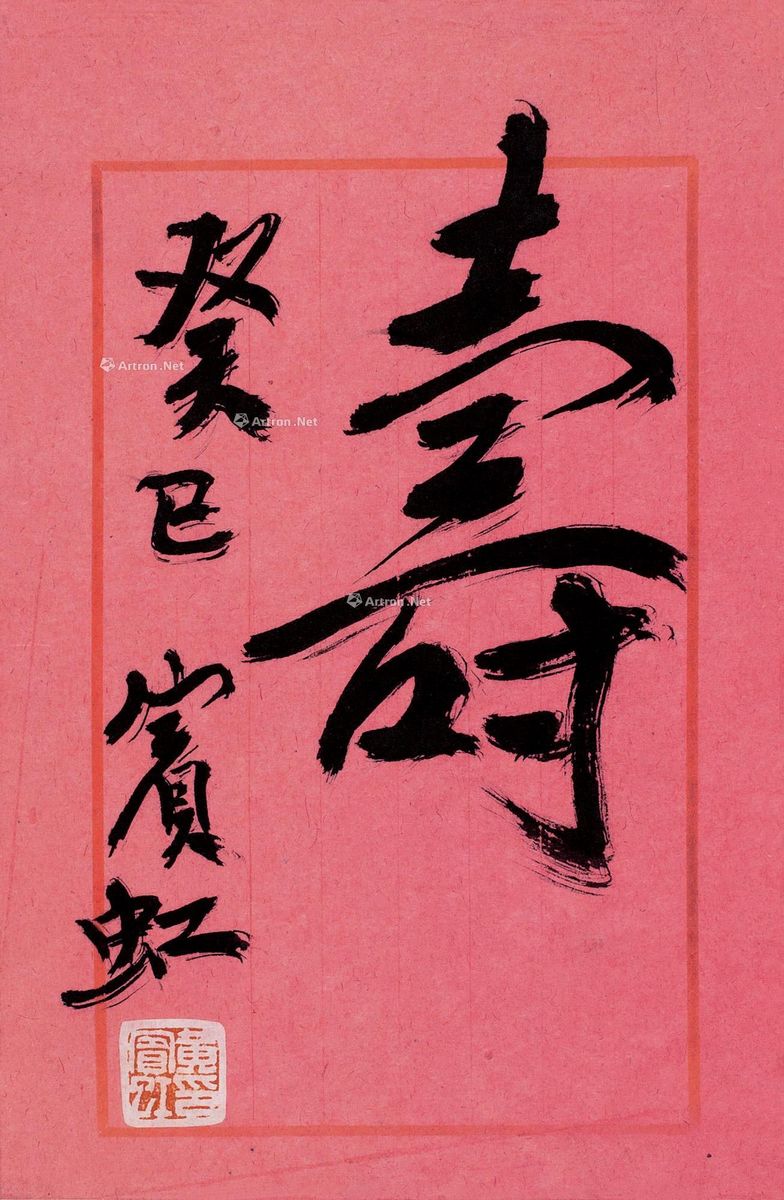 壽
癸巳
賓虹
黄賓虹印
Artron.Net
Artron.Net
Artron.Net